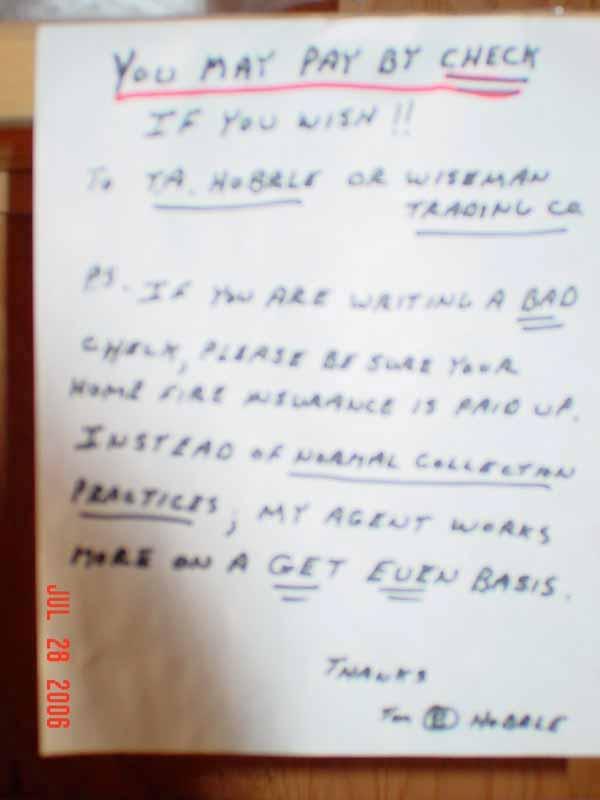 YOU MAY PAY BY CHECK
IF YOU WISH !!
TO T.A. HOBRLE OR WISEMAN
TRADING CO.
PS. IF YOU ARE WRITING A BAD
CHECK, PLEASE BE SURE YOUR
HOME FIRE INSURANCE IS PAID UP.
INSTEAD OF NORMAL COLLECTION
PRACTICES, MY AGENT WORKS
MORE ON A GET EVEN BASIS.
THANKS
HOBRLE
JUL 28 2006